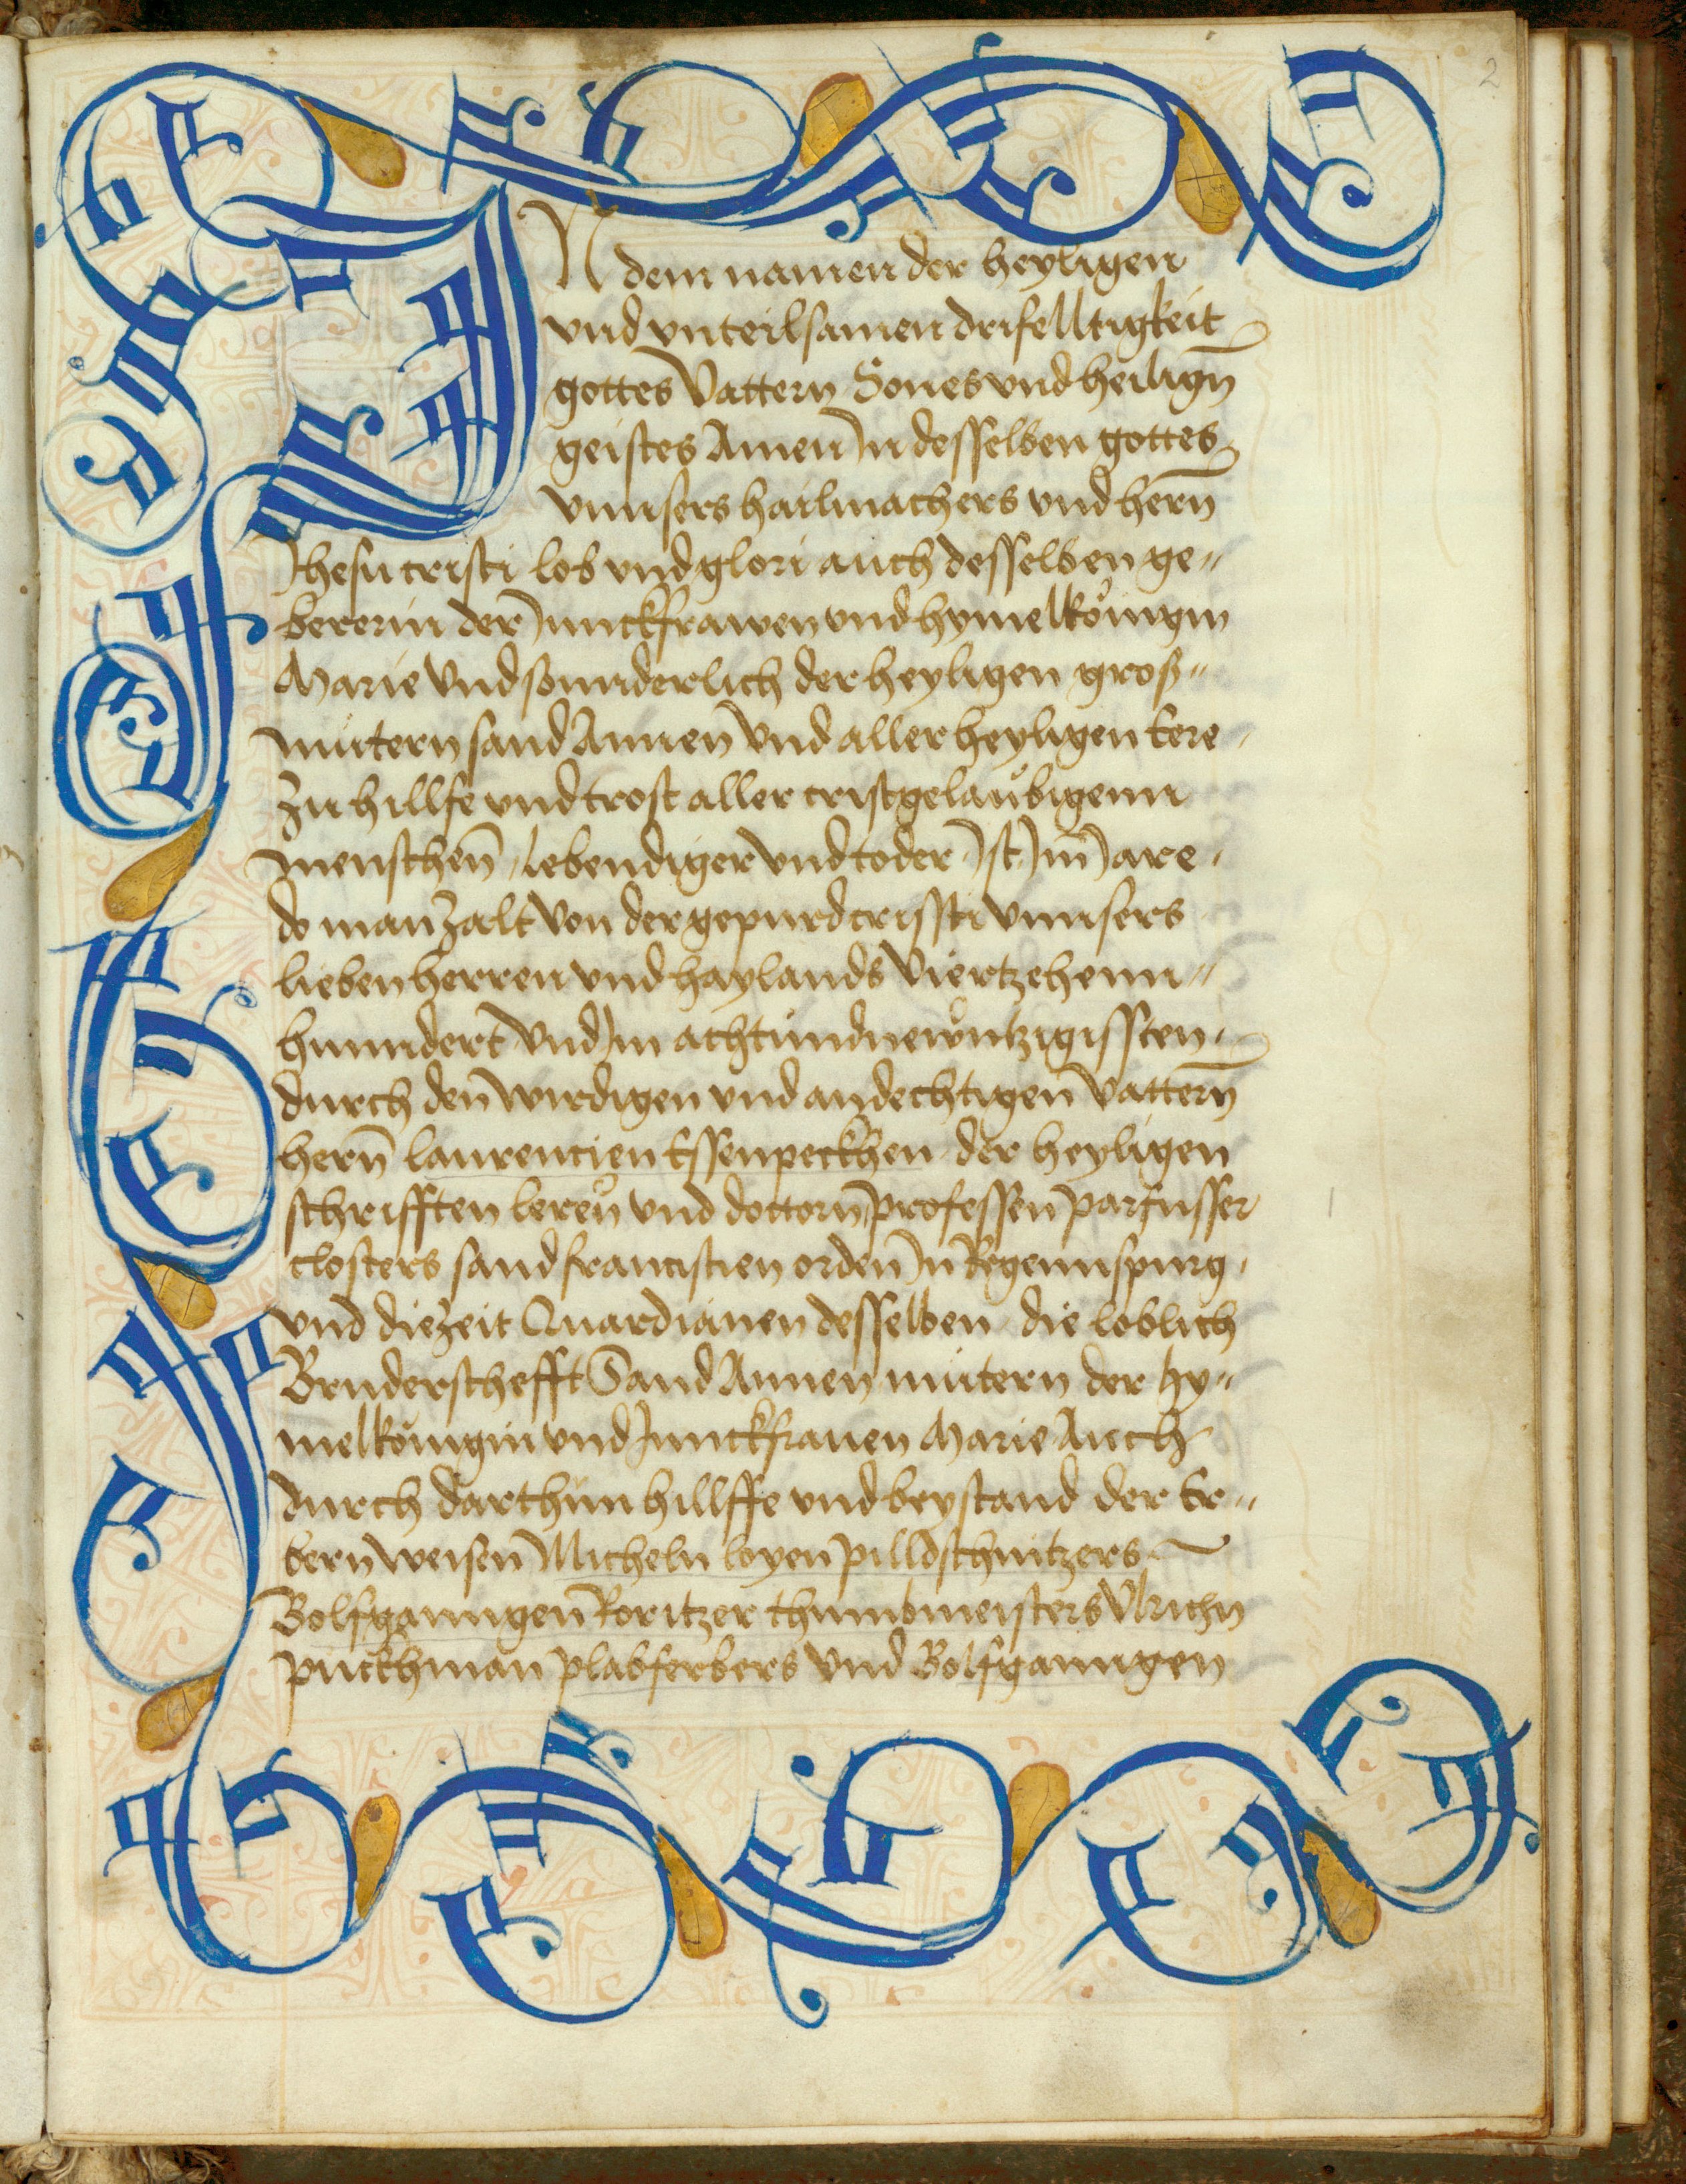 2
IN dem namen der heyligen
vnd vnteilsamen drifelltigkeit
gottes Vattern Sones vnd heilign̄
geistes Amen In desselben gottes
vnnsers hailmachers vnd hern̄
Jhesu cristi lob vnd glori auch desselben ge〃
bererin der Junckfrawen vnd hymelkönigin
Marie Vnd sonnderlich der heyligen groß〃
mütern sand Annen Vnd aller heyligen Ere
Zu hillfe vnd trost aller cristgelaübigenn
menschen̄ lebendiger vnd toder Ist Im̄ Jare
do man Zalt Von der gepurd crissti vnnsers
lieben herren vnd haylands Viertzehenn〃
hunndert Vnd Im achtundnewntzigissten
durch den wirdigen vnd andechtigen Vattern̄
hern̄ laurencien Essenpeckhen der heyligen
schrifften lerer̄ vnd doctorn̄ professen parfusser
closters sand francistien orden In Regennspurg
vnd die Zeit Quardianen desselben die loblich
Bruderschefft Sand Annen mütern der hy〃
melkönigin vnd Junckfrauen Marie Auch
durch darthün hillffe vnd beystand der Er〃
bern weisen Micheln loyen pilldschnitzers
Wolfganngen Roritzer thumbmeisters Vlrichn
puckhman plabferbers vnd Wolfganngen